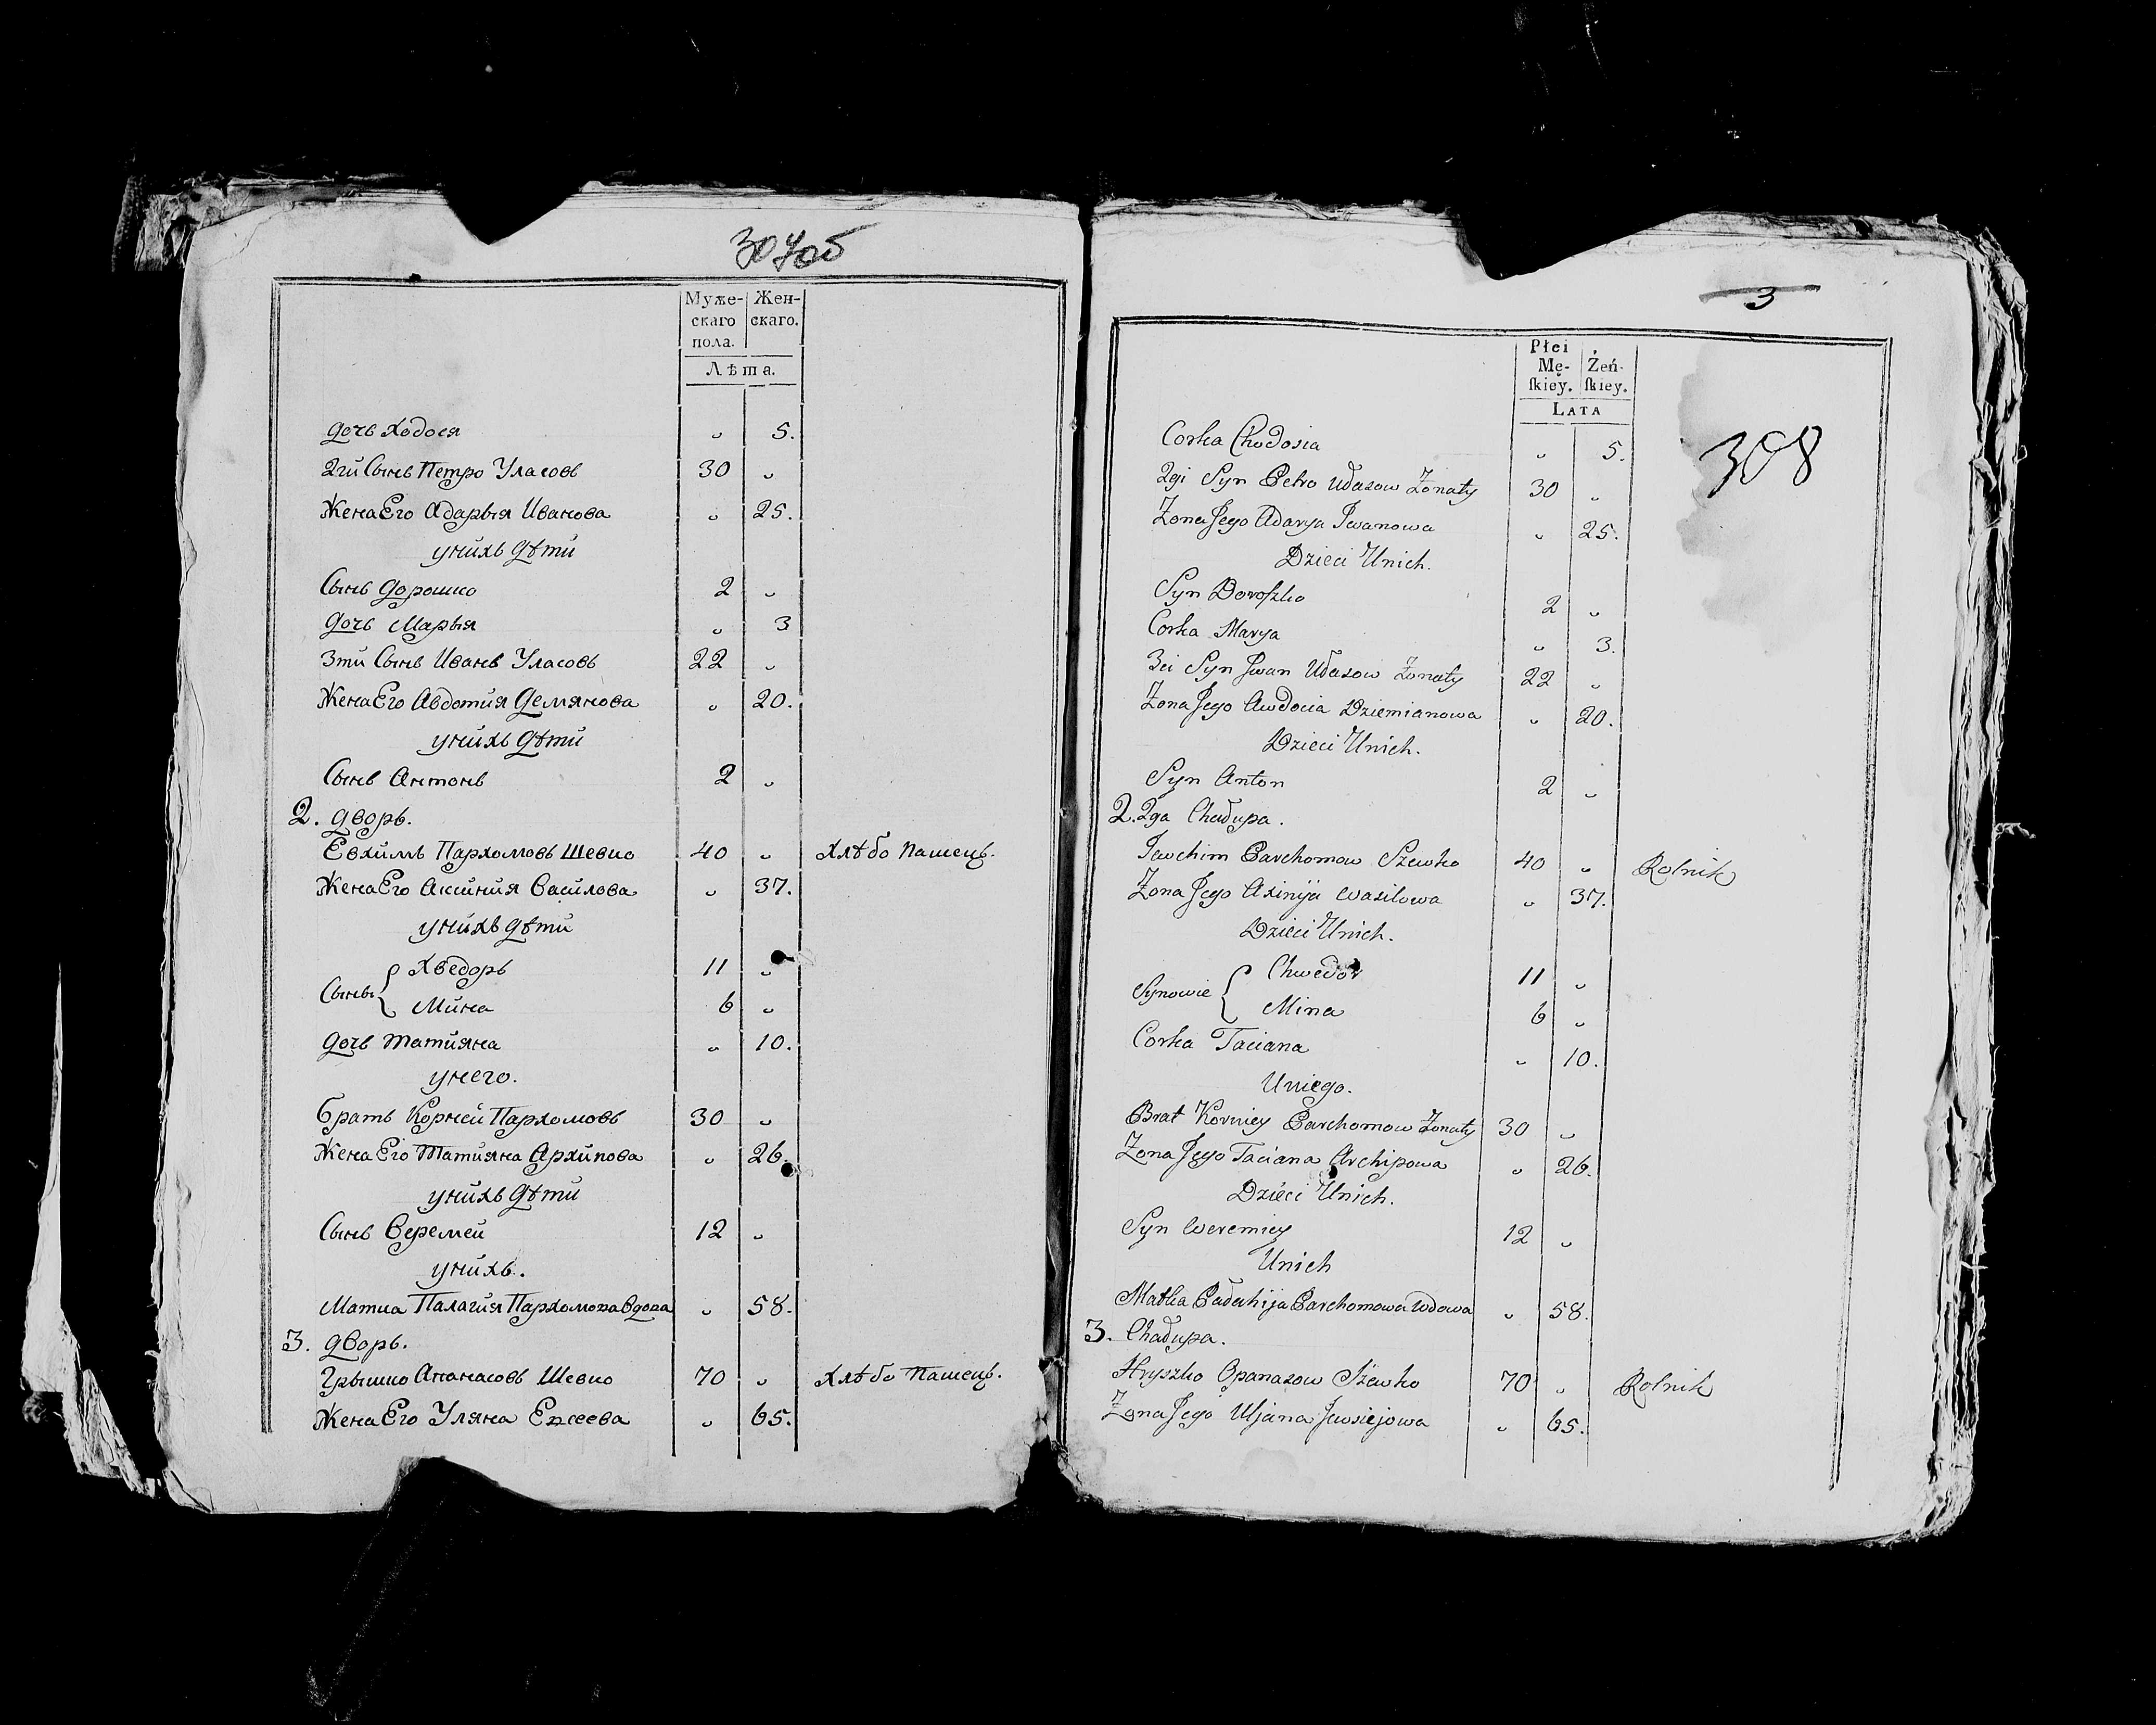 307об
Муже- Жен-
скаго скаго.
пола.
Лѣта.
Дочь Ходося " 5.
2гй Сынъ Петро Уласовъ 30 "
Жена Его Адарыя Иванова " 25.
унйхъ Дѣтй
Сынъ Дорошко 2 "
Дочь Марыя " 3
3тй Сынъ Иванъ Уласовъ 22 "
Жена Его Авдотйя Демянова " 20.
унйхъ Дѣтй
Сынъ Антонъ 2 "
2. Дворъ.
Евхимъ Пархомовъ Шевко 40 " Хлѣбо Пашецъ.
Жена Его Аксйнйя Васйлова " 37.
унйхъ Дѣтй
Сыны { Хведоръ 11 "
Мйна 6 "
Дочь Татйяна " 10.
унего.
Братъ Корней Пархомовъ 30 "
Жена Его Татйяна Архйпова " 26.
унйхъ Дѣтй
Сынъ Веремей 12 "
унйхъ.
Матка Палагйя Пархомова Вдова " 58.
3. Дворъ.
Грышко Апанасовъ Шевко 70 " Хлѣбо Пашецъ.
Жена Его Уляна Евсеева " 65.
3
308
Płei
Mę- Żeń-
ſkiey. ſkiey.
LATA
Corka Chodosia " 5.
2gi Syn Petro Ułasow Żonaty 30 "
Żona Jego Adarya Iwanowa " 25.
Dzieci Unich.
Syn Doroſzko 2 "
Corka Marya " 3.
3ci Syn Jwan Ułasow Żonaty 22 "
Żona Jego Awdocia Dziemianowa " 20.
Dzieci Unich.
Syn Anton 2 "
2. 2ga Chałupa.
Jewchim Parchomow Szewko 40 " Rolnik
Żona Jego Axinija Wasilowa " 37.
Dzieci Unich.
Synowie { Chwedor 11 "
Mina 6 "
Corka Taciana " 10.
Uniego.
Brat Korniey Parchomow Żonaty 30 "
Żona Jego Taciana Archipowa " 26.
Dzieci Unich.
Syn Weremiey 12 "
Unich
Matka Pałahija Parchomowa Wdowa " 58.
3. Chałupa.
Hryszko Opanasow Szewko 70 " Rolnik
Żona Jego Uljana Jewsiejowa " 65.